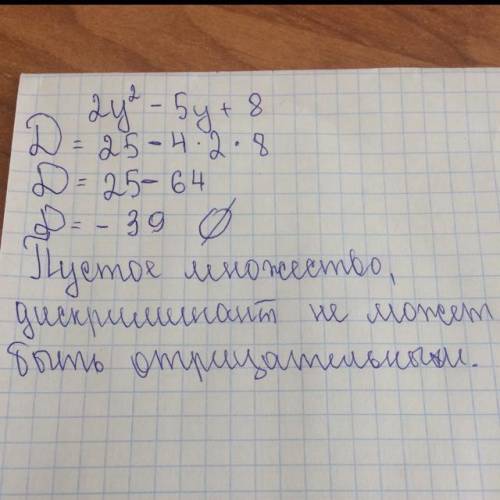 2y² - 5y + 8
D = 25 - 4 · 2 · 8
D = 25 - 64
D = - 39 ∅
Пустое множество,
дискриминант не может
быть отрицательным.